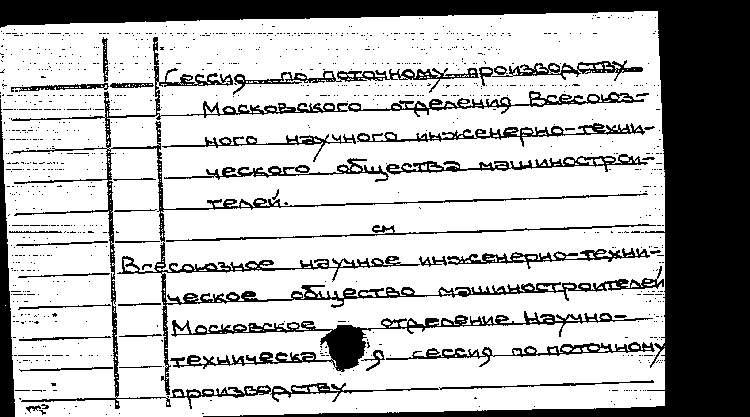 Сессия по поточному производству
Московского отделения Всесоюз-
ного научного инженерно-техни-
ческого общества машинострои-
телей.
см
Всесоюзное научное инженерно-техни-
ческое общество машиностроителей
Московское отделение. Научно-
техническая сессия по поточному
производству.